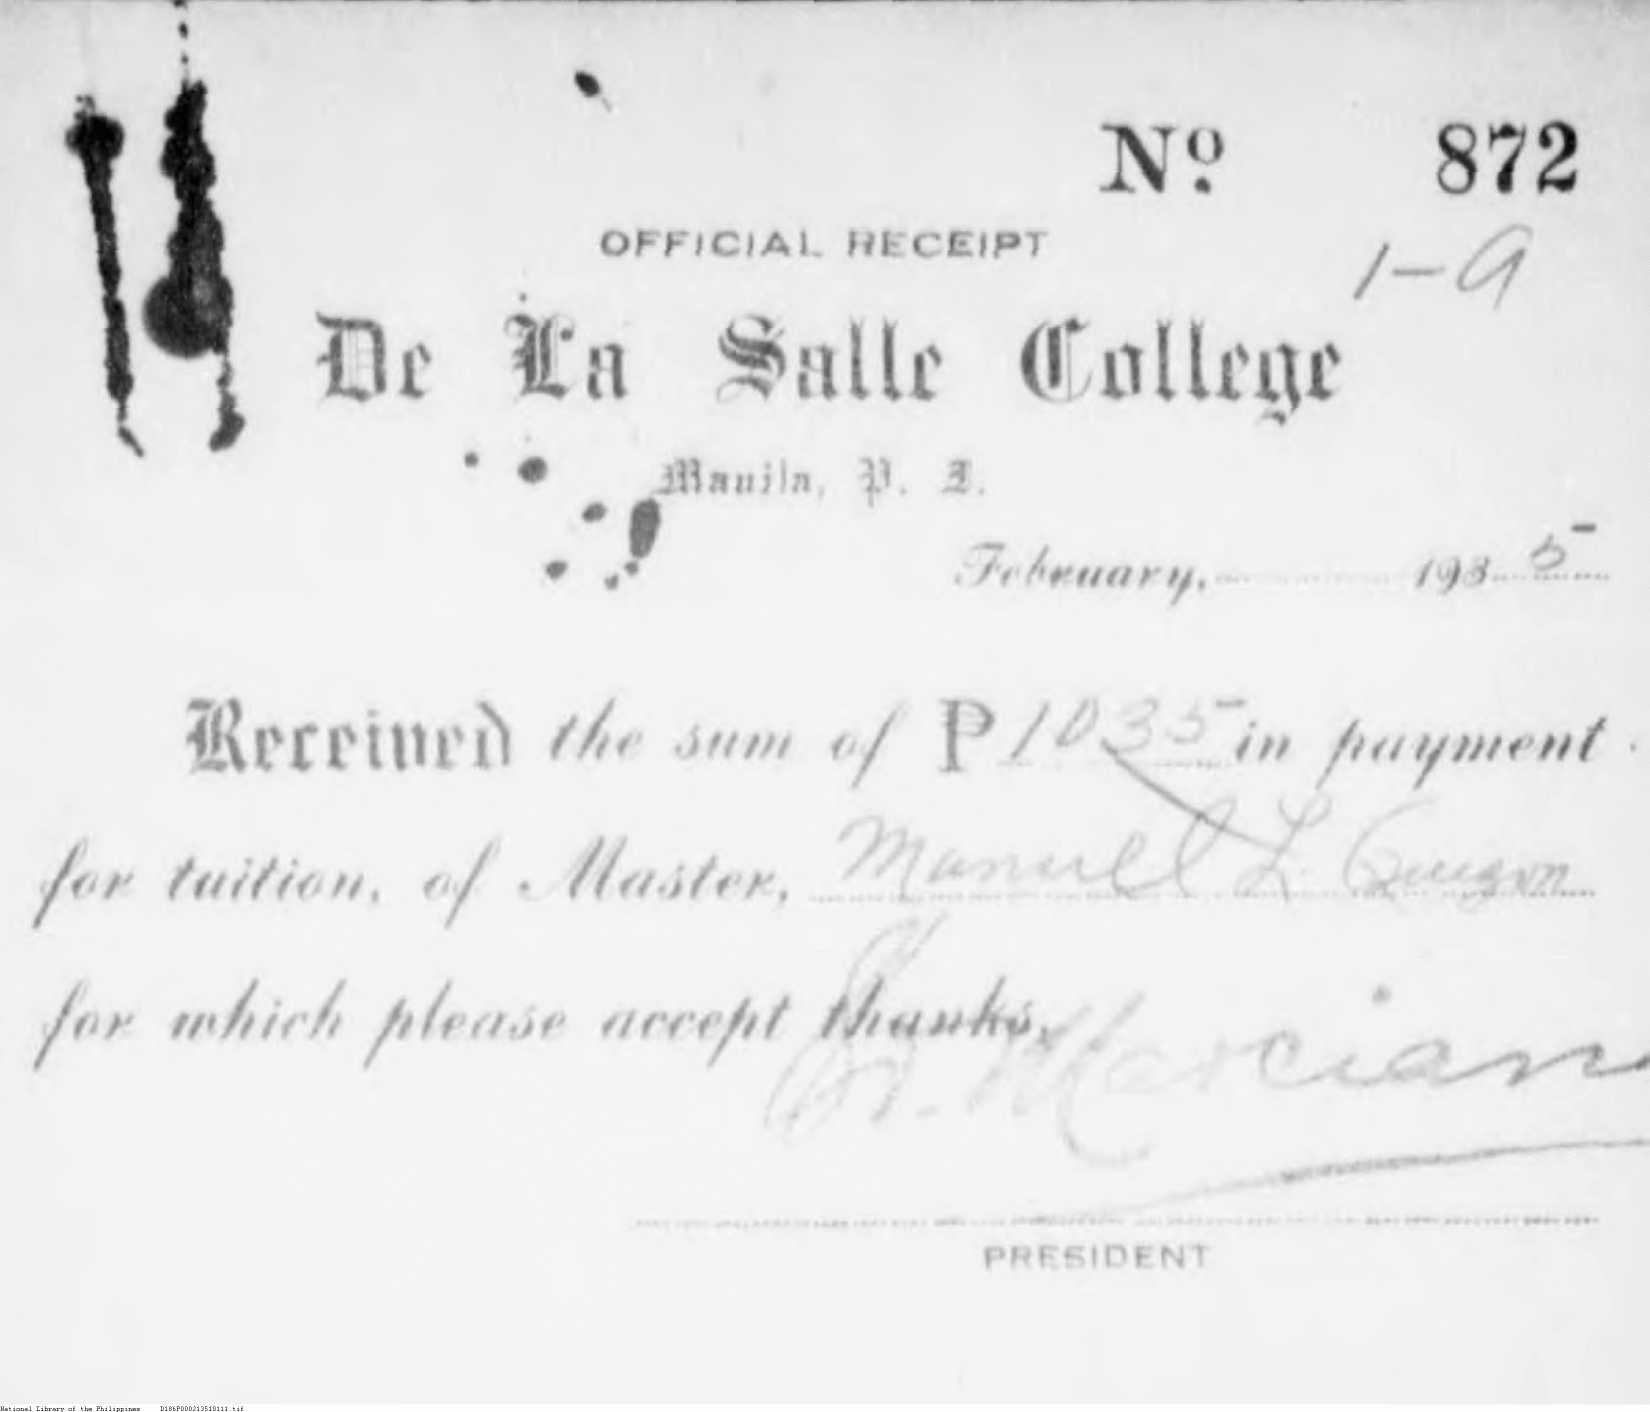 Nº 872
OFFICIAL RECEIPT
1-A
De La Salle College
Manila, P. I.
February, 1935
Received the sum of ₱1035 in payment
for tuition, of Master, Manuel L. Quezon
for which please accept thanks,
PRESIDENT
National Library of the Philippines D186P000213510111.tif